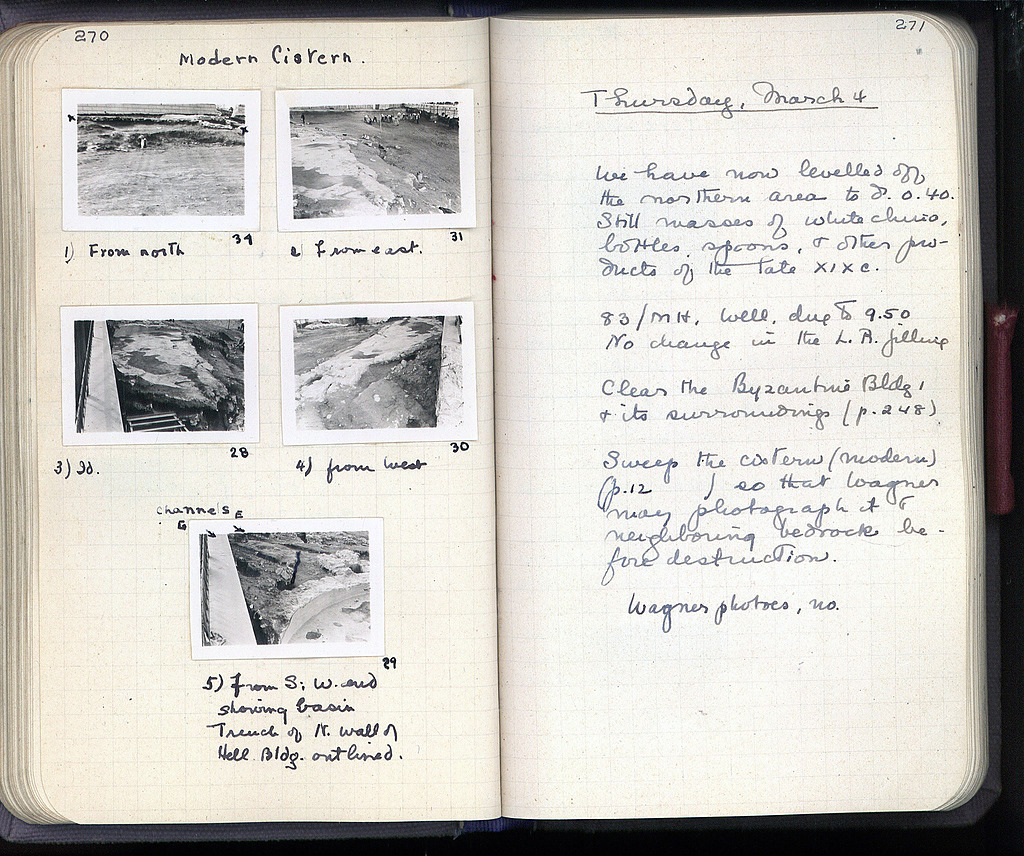 270
Modern Cistern.
34
1) From north
31
2 From east.
28
3) Id.
30
4) from West
channels E
G
29
5) from S. W. end
showing basin
Trench of N. wall of
Hell. Bldg. outlined.
271
Thursday, March 4
We have now levelled off
the northern area to d. 0.40.
Still masses of white china,
bottles, spoons, & other pro-
ducts of the late XIX c.
83/MH. Well, dug to 9.50
No change in the L. R. filling
Clear the Byzantine Bldg
& its surroundings (p. 248)
Sweep the cistern (modern)
(p.12 ) so that Wagner
may photograph it &
neighboring bedrock be-
fore destruction.
Wagner photoes, no.